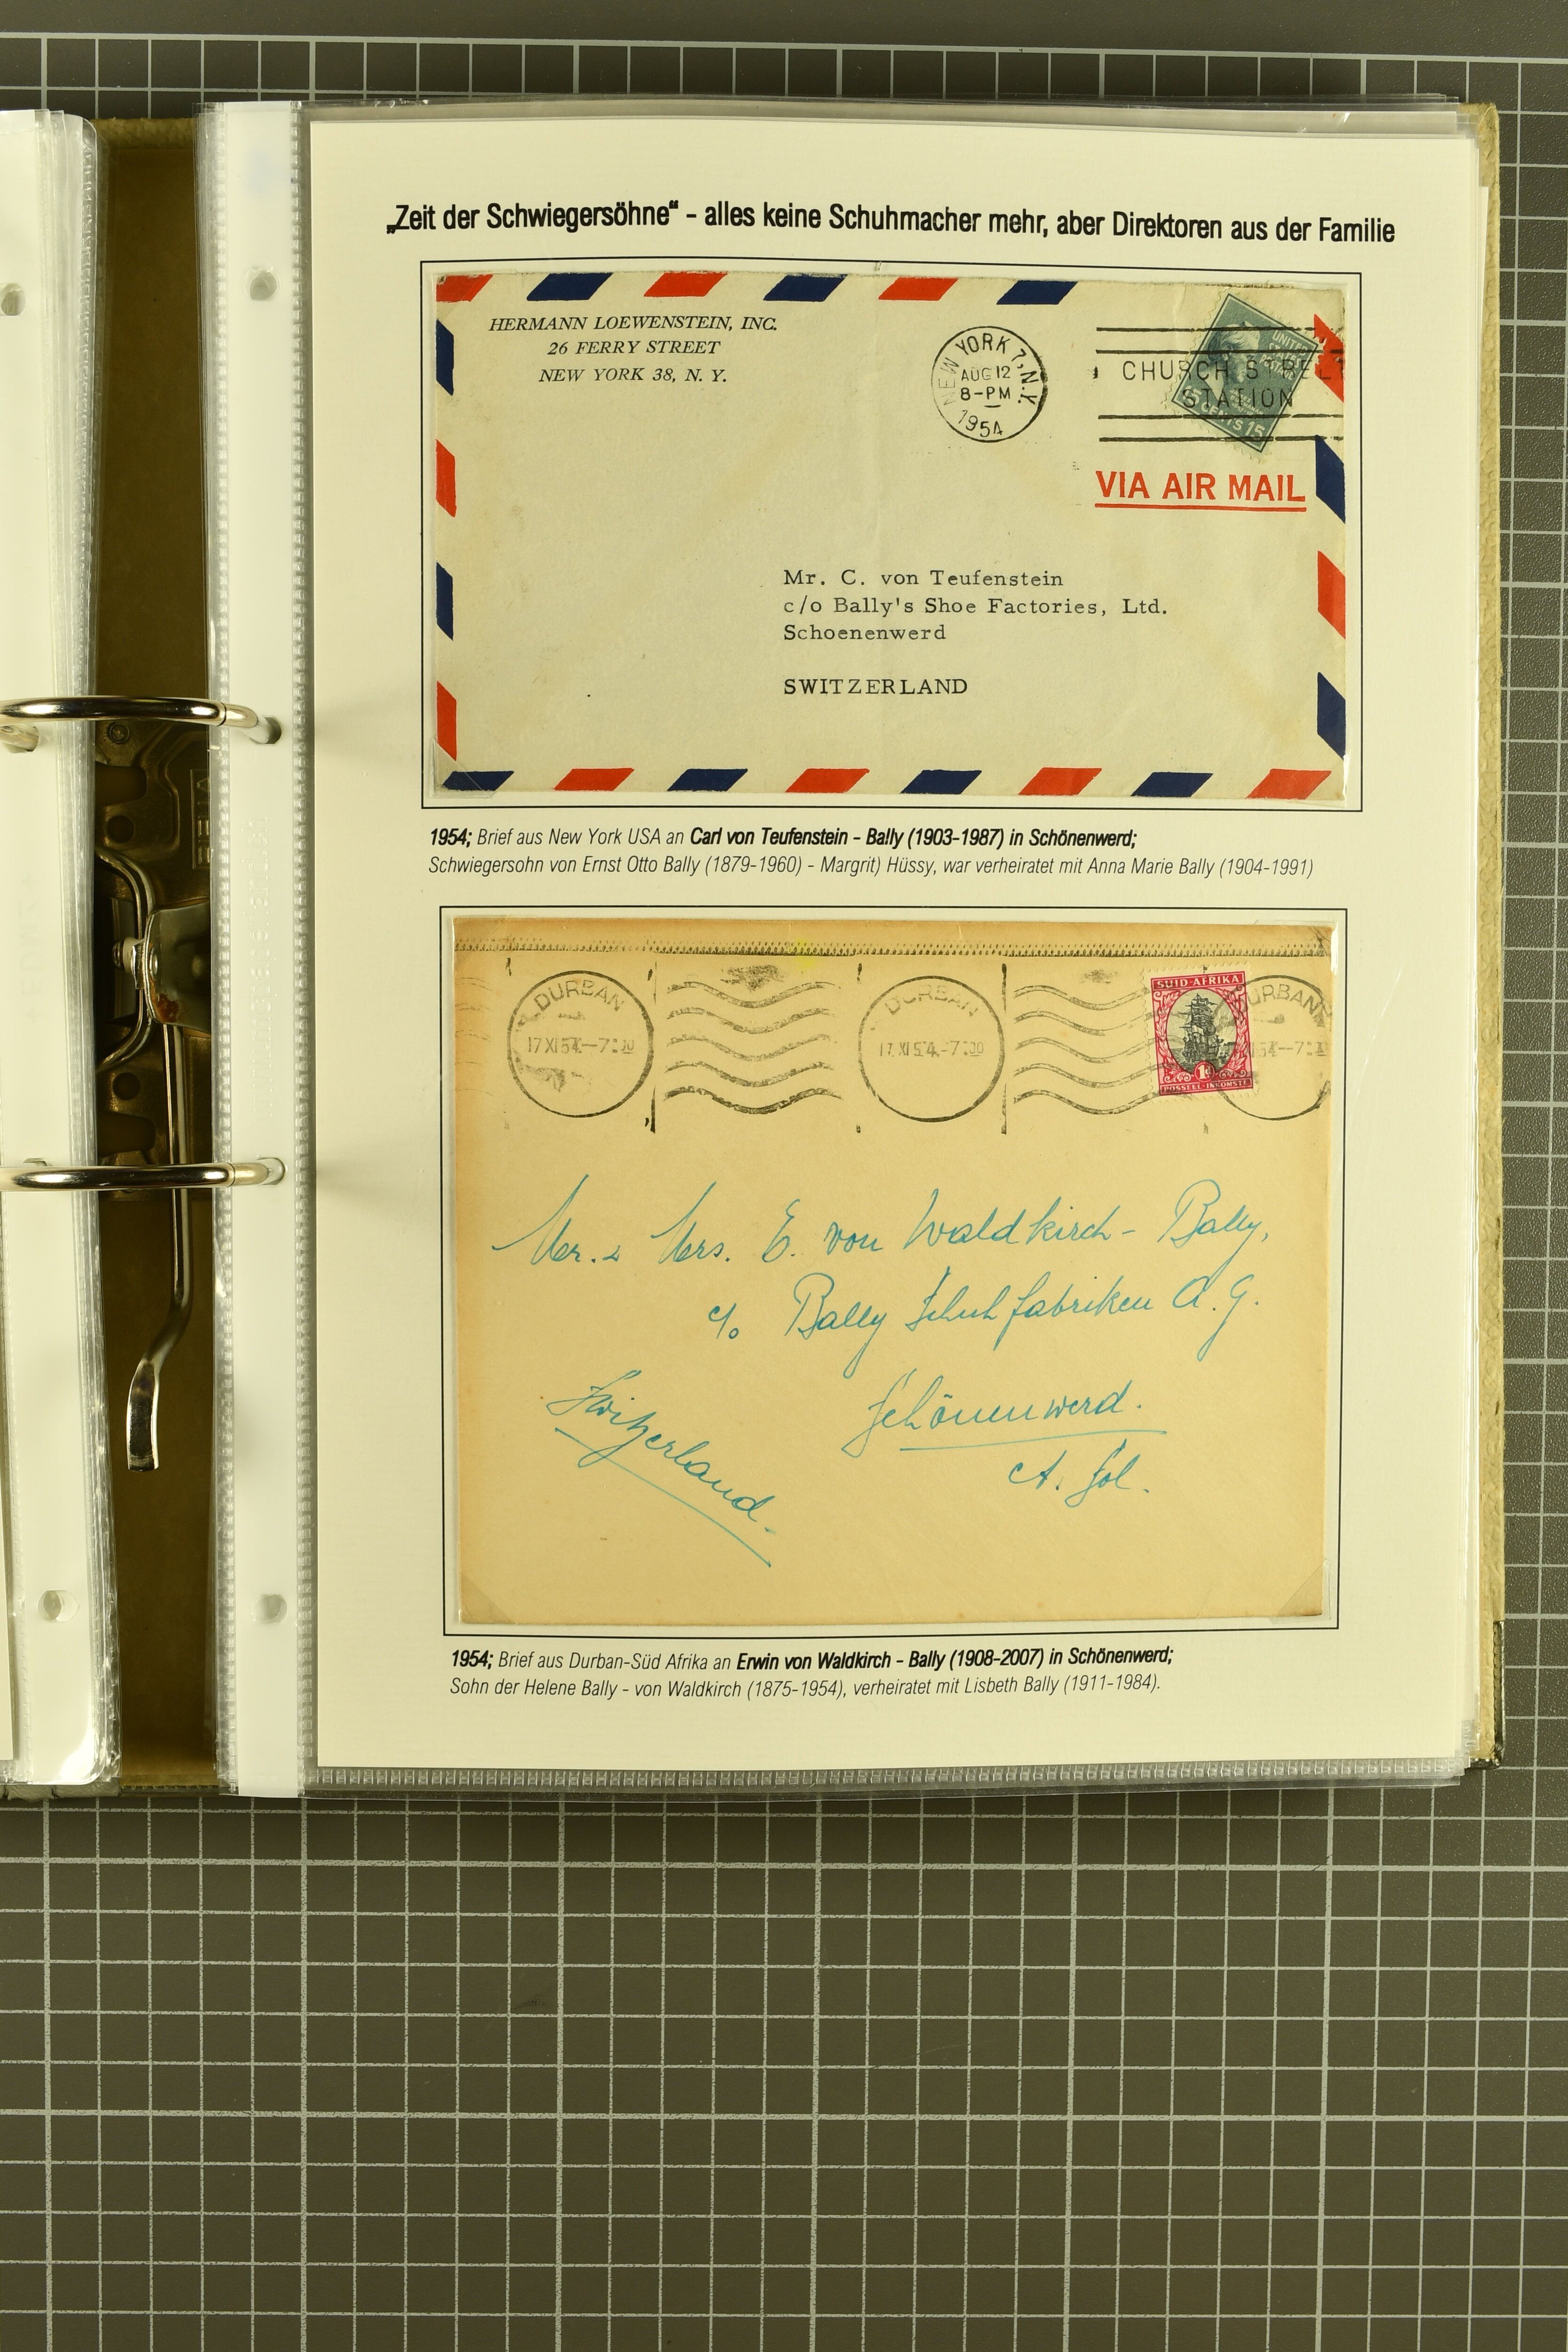 „Zeit der Schwiegersöhne“ - alles keine Schuhmacher mehr, aber Direktoren aus der Familie
HERMANN LOEWENSTEIN, INC.
26 FERRY STREET
NEW YORK 38, N. Y.
NEW YORK 7, N.Y.
AUG 12
8-PM
1954
CHURCH STREET
STATION
UNITED STATES
15 CENTS 15
VIA AIR MAIL
Mr. C. von Teufenstein
c/o Bally's Shoe Factories, Ltd.
Schoenenwerd
SWITZERLAND
1954; Brief aus New York USA an Carl von Teufenstein - Bally (1903-1987) in Schönenwerd;
Schwiegersohn von Ernst Otto Bally (1879-1960) - Margrit) Hüssy, war verheiratet mit Anna Marie Bally (1904-1991)
DURBAN
17 XI 54 - 7:30
DURBAN
17 XI 54 - 7:30
SUID-AFRIKA
1D
POSSEEL-INKOMSTE
DURBAN
Mr. & Mrs. E. von Waldkirch - Bally,
c/o Bally Schuhfabriken A.G.
Schönenwerd.
Kt. Sol.
Switzerland.
1954; Brief aus Durban-Süd Afrika an Erwin von Waldkirch - Bally (1908-2007) in Schönenwerd;
Sohn der Helene Bally - von Waldkirch (1875-1954), verheiratet mit Lisbeth Bally (1911-1984).